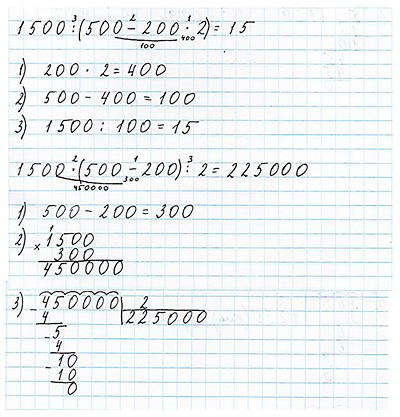 1500 : (500 - 200 · 2) = 15
3 2 1
400
100
1) 200 · 2 = 400
2) 500 - 400 = 100
3) 1500 : 100 = 15
1500 · (500 - 200) : 2 = 225000
2 1 3
300
450000
1) 500 - 200 = 300
2) × 1500
1
300
450000
3) - 450000 | 2
4 225000
- 5
4
- 10
10
0